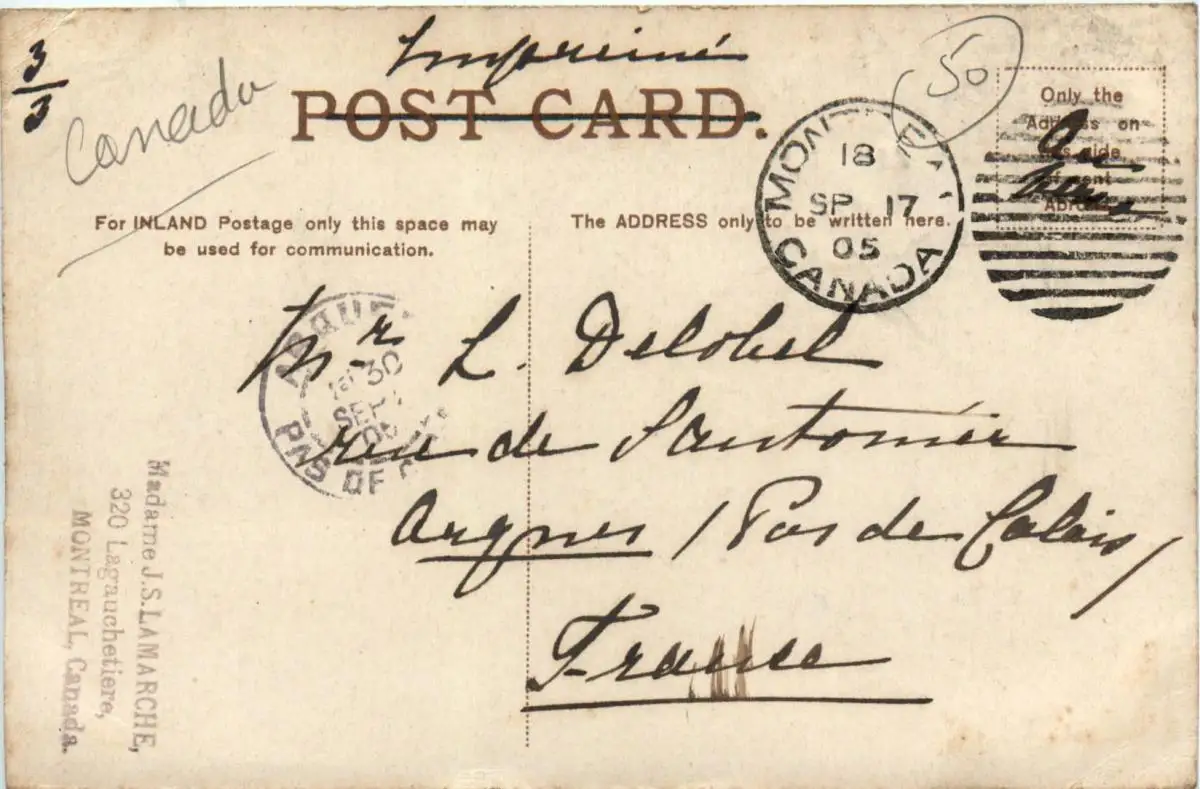 3/3
Canada
Imprimé
POST CARD.
50
Only the
Address on
this side
if sent
Abroad
Au
MONTREAL
18
SP 17
05
CANADA
For INLAND Postage only this space may
be used for communication.
The ADDRESS only to be written here.
ARQUES
30
SEPT
05
PAS DE
Mr L. Delobel
rue de Santonier
Arques / Pas de Calais /
France
Madame J.S. LAMARCHE,
320 Lagauchetiere,
MONTREAL, Canada.